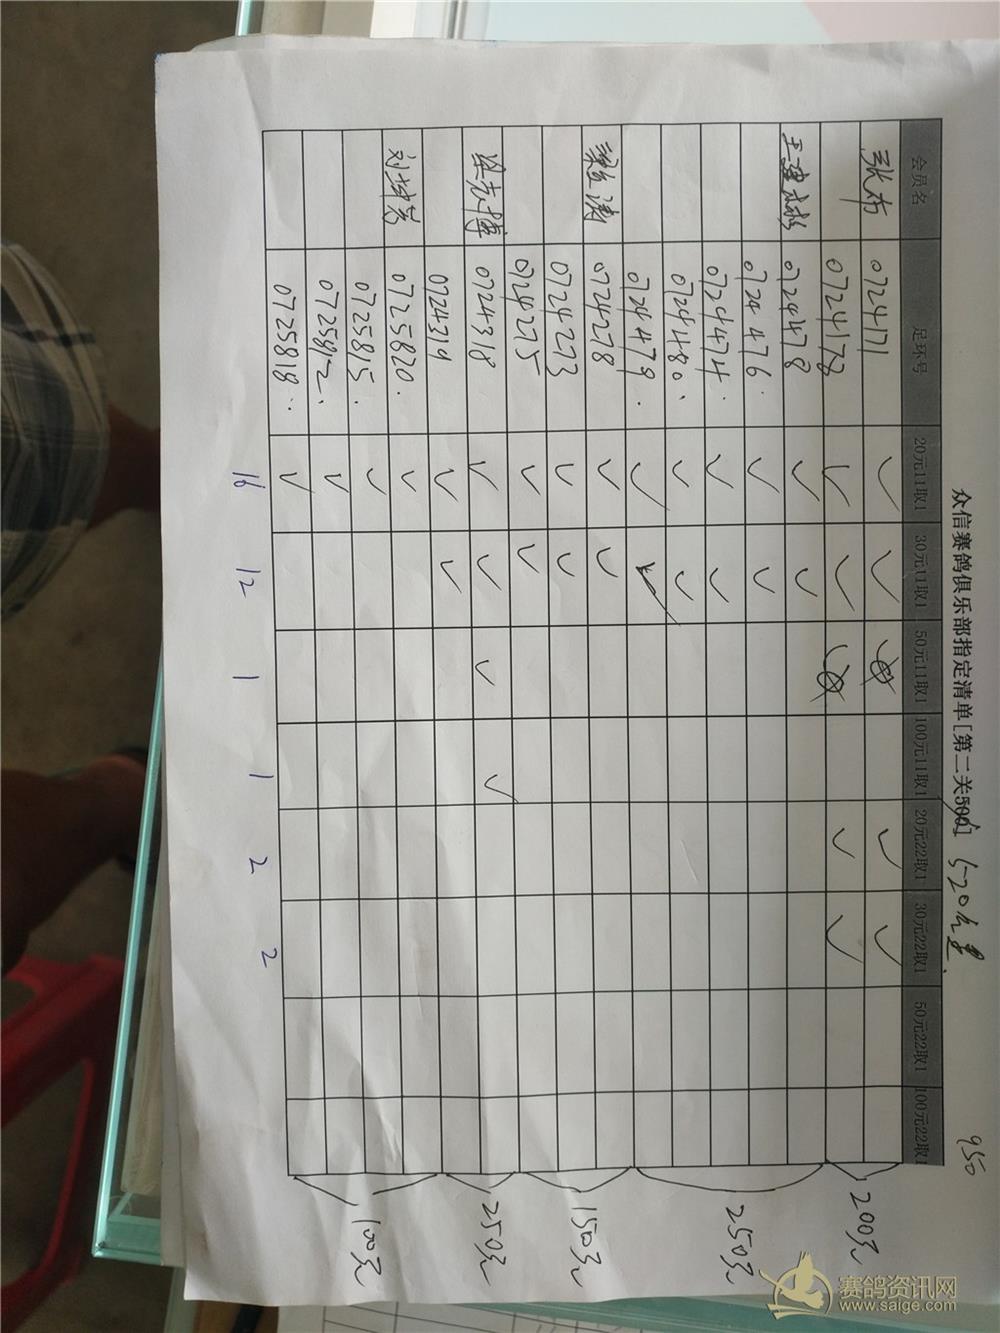 众信赛鸽俱乐部指定清单[第二关500] 520公里
950
会员名 足环号 20元11取1 30元11取1 50元11取1 100元11取1 20元22取1 30元22取1 50元22取1 100元22取1
0724171 ✓ ✓ ✓ ✓
0724178 ✓ ✓ ✓ ✓ 200元
王建彬 0724478 ✓ ✓
0724476 ✓ ✓
0724474 ✓ ✓
0724480 ✓ ✓
0724479 ✓ ✓ 250元
0724278 ✓ ✓
0724273 ✓ ✓
0724275 ✓ ✓ 150元
0724318 ✓ ✓ ✓ ✓
0724319 ✓ ✓ 250元
0725820 ✓
0725815 ✓
0725812 ✓
0725818 ✓ 100元
16 12 1 1 2 2
赛鸽资讯网
www.saige.com